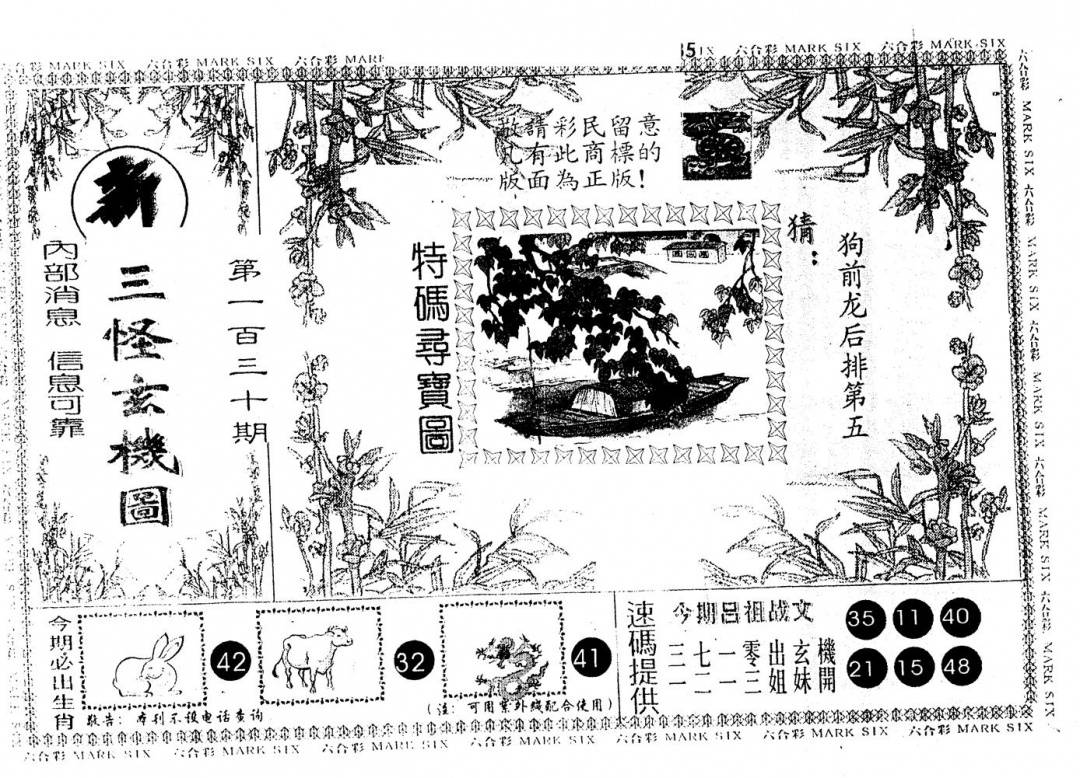 六合彩 MARK SIX 六合彩 MARK SIX 六合彩 MARK
5IX 六合彩 MARK SIX 六合彩 MARK SIX
新
三怪玄機圖
內部消息 信息可靠
第一百三十期
敬請彩民留意
凡有此商標的
版面為正版!
特碼尋寶圖
猜:
狗前龙后排第五
今期必出生肖
42
32
41
敬告: 本刊不设电话查询
(注: 可用紫外线配合使用)
速碼提供
今期吕祖战文
三七一零出玄機
二一一三姐妹開
35 11 40
21 15 48
六合彩 MARK SIX 六合彩 MARK SIX 六合彩 MARK SIX 六合彩 MARK SIX 六合彩 MARK SIX 六合彩 MARK SIX 六合彩 MARK SIX
六合彩 MARK SIX 六合彩 MARK SIX 六合彩 MARK SIX 六合彩 MARK SIX 六合彩 MARK SIX